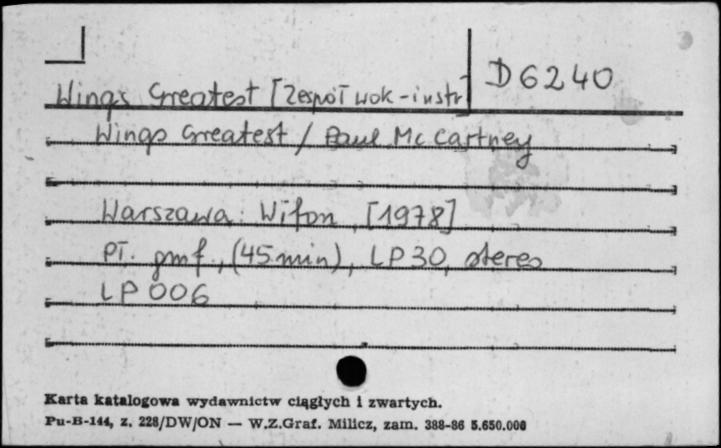 D 6240
Wings Greatest [Zespół wok-instr]
Wings Greatest / Paul Mc Cartney
Warszawa: Wifon, [1978]
Pł. gmf., (45 min), LP 30, stereo
LP 006
Karta katalogowa wydawnictw ciągłych i zwartych.
Pu-B-144, z. 228/DW/ON — W.Z.Graf. Milicz, zam. 388-86 5.650.000